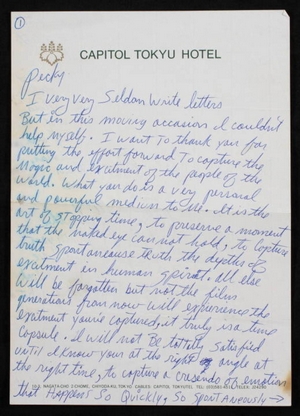 ①
CAPITOL TOKYU HOTEL
I Very Very Seldon write letters
But in this moving occasion I couldn't
help Myself. I want To thank you for
putting the effort forward To capture the
Magic and exciment of the people of the
World. What you do is a very personal
and powerful medium to me. It is the
art of stopping time, to preserve a moment
that the naked eye can not hold, to capture
truth spontaneause truth the depths of
excitment in human spirat. All else
will be forgotten but not the films
generations from now will experience the
exatment you've captured, it truly is a time
Capsule. I will not Be totally satisfied
until I know your at the right angle at
the right time, to capture a crusendo of emotion
that Happens So Quickly, So Spontaneously →